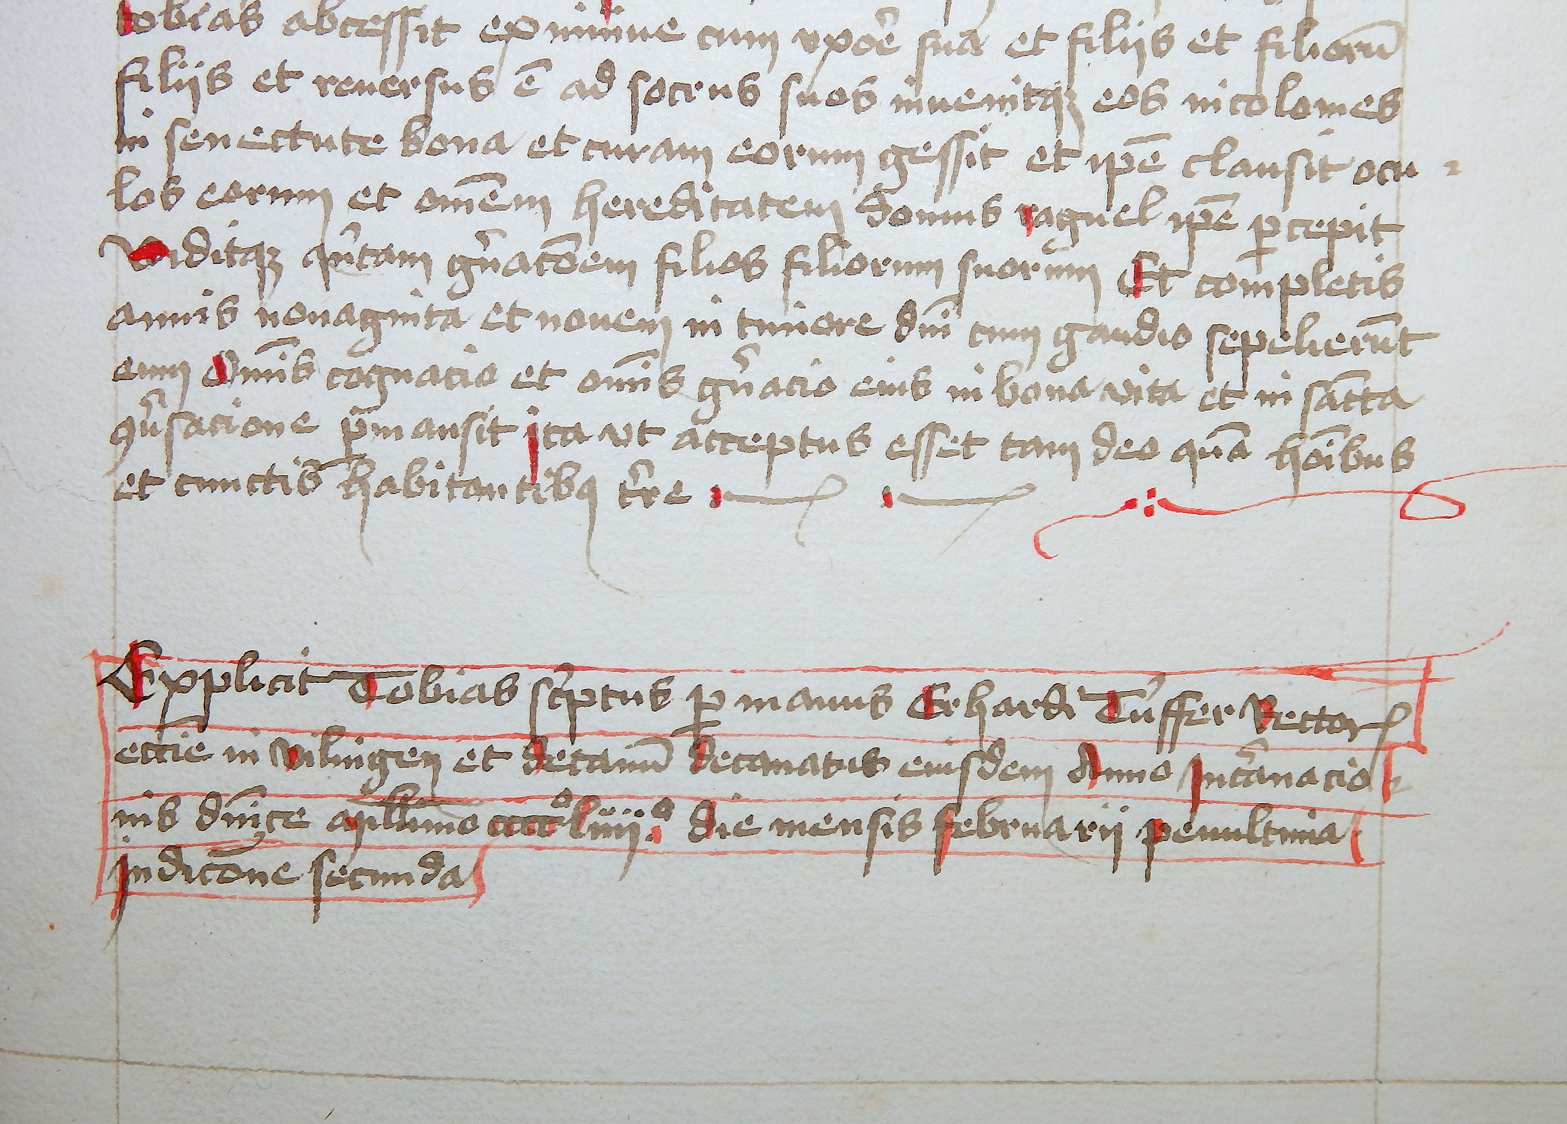 tobias abcessit ex ninive cum vxōe sua et filiis et filiorū
filiis et reuersus ē ad socrus suos invenitqꝫ eos incolomes
in senectute bona et curam eorum gessit et ipē clausit ocu
los eorum et omēm hereditatem domus raguel ipē ꝑcepit
viditqꝫ qn̄tam gn̄acōem filios filiorum suorum Et completis
annis nonaginta et novem in timore dn̄i cum gaudio sepelierūt
eum Om̄is cognacio et om̄is gn̄acio eius in bona vita et in sācta
ꝯv̄sacione ꝑmansit ita vt acceptus esset tam deo quā hoībus
et cunctis habitantibꝫ t̄re
Explicit Tobias sc̄ptus ꝑ manus Erhardi Tu̇sser Rector
eccīe in vilingen et decanū decanatus eiusdem Anno Incarnacio
nis dn̄ice millimo ccccº liiiiº die mensis februarii penultima
Indicōne secunda